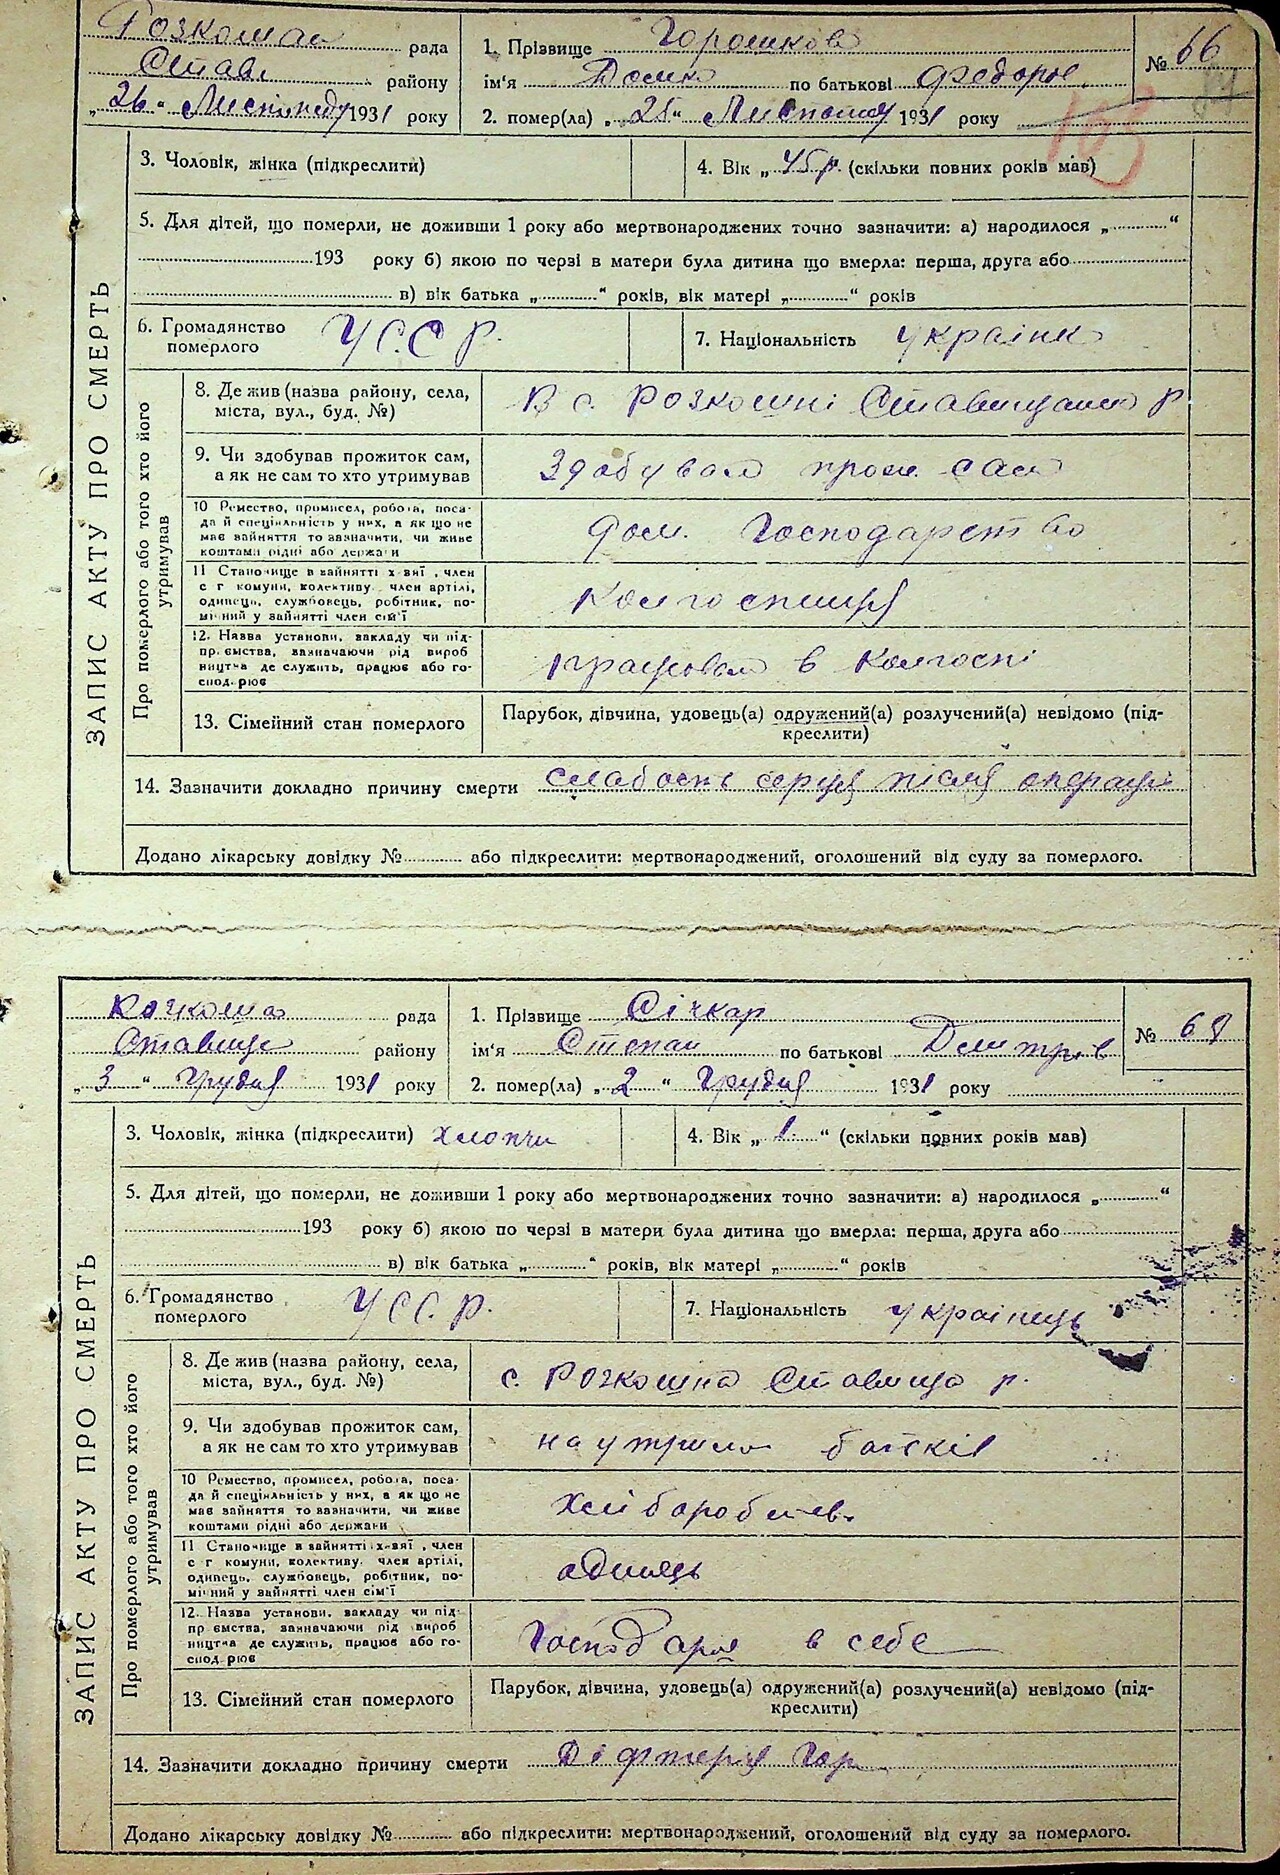 Розкошан рада
Став. районy
„26“ Листопаду 1931 року
1. Прізвище Горошкова
ім'я Домка по батькові Федорів.
2. помер(ла) „25“ Листопаду 1931 року
№ 66
103
3. Чоловік, жінка (підкреслити)
4. Вік „45 р. (скільки повних років мав)
5. Для дітей, що померли, не доживши 1 року або мертвонароджених точно зазначити: а) народилося „ “
193 року б) якою по черзі в матери була дитина що вмерла: перша, друга або
в) вік батька „ “ років, вік матері „ “ років
ЗАПИС АКТУ ПРО СМЕРТЬ
6. Громадянство
померлого
УССР.
7. Національність українка
Про померлого або того хто його
утримував
8. Де жив (назва району, села,
міста, вул., буд. №)
В с. Розкошні Ставищанськ р
9. Чи здобував прожиток сам,
а як не сам то хто утримував
Здобувала прож. сама
10 Ремество, промисел, робота, поса-
да й спеціяльність у них, а як що не
має зайняття то зазначити, чи живе
коштами рідні або держави
дом. господарство
11 Становище в зайнятті х-ви , член
с г комуни, колективу. член артілі,
одинець, службовець, робітник, по-
мічний у зайнятті член сім'ї
Колгоспниця
12. Назва установи, закладу чи під-
приємства, зазначаючи рід вироб
ництва де служить, працює або го-
сподарює
працювала в колгоспі
13. Сімейний стан померлого
Парубок, дівчина, удовець(а) одружений(а) розлучений(а) невідомо (під-
креслити)
14. Зазначити докладно причину смерти слабость серця після операції
Додано лікарську довідку № або підкреслити: мертвонароджений, оголошений від суду за померлого.
Розкошна рада
Ставище району
„3“ Грудня 1931 року
1. Прізвище Січкар
ім'я Степан по батькові Дмитрів
2. помер(ла) „2“ Грудня 1931 року
№ 68
3. Чоловік, жінка (підкреслити) хлопчи
4. Вік „1“ (скільки повних років мав)
5. Для дітей, що померли, не доживши 1 року або мертвонароджених точно зазначити: а) народилося „ “
193 року б) якою по черзі в матери була дитина що вмерла: перша, друга або
в) вік батька „ “ років, вік матері „ “ років
ЗАПИС АКТУ ПРО СМЕРТЬ
6. Громадянство
померлого
УССР.
7. Національність українець
Про померлого або того хто його
утримував
8. Де жив (назва району, села,
міста, вул., буд. №)
с. Розкошна Ставища р.
9. Чи здобував прожиток сам,
а як не сам то хто утримував
на утрим. батьків
10 Ремество, промисел, робота, поса-
да й спеціяльність у них, а як що не
має зайняття то зазначити, чи живе
коштами рідні або держави
хліборобств.
11 Становище в зайнятті х-ви , член
с г комуни, колективу. член артілі,
одинець, службовець, робітник, по-
мічний у зайнятті член сім'ї
одинець
12. Назва установи, закладу чи під-
приємства, зазначаючи рід вироб
ництва де служить, працює або го-
сподарює
Господарює в себе
13. Сімейний стан померлого
Парубок, дівчина, удовець(а) одружений(а) розлучений(а) невідомо (під-
креслити)
14. Зазначити докладно причину смерти Дефтерія Гор.
Додано лікарську довідку № або підкреслити: мертвонароджений, оголошений від суду за померлого.